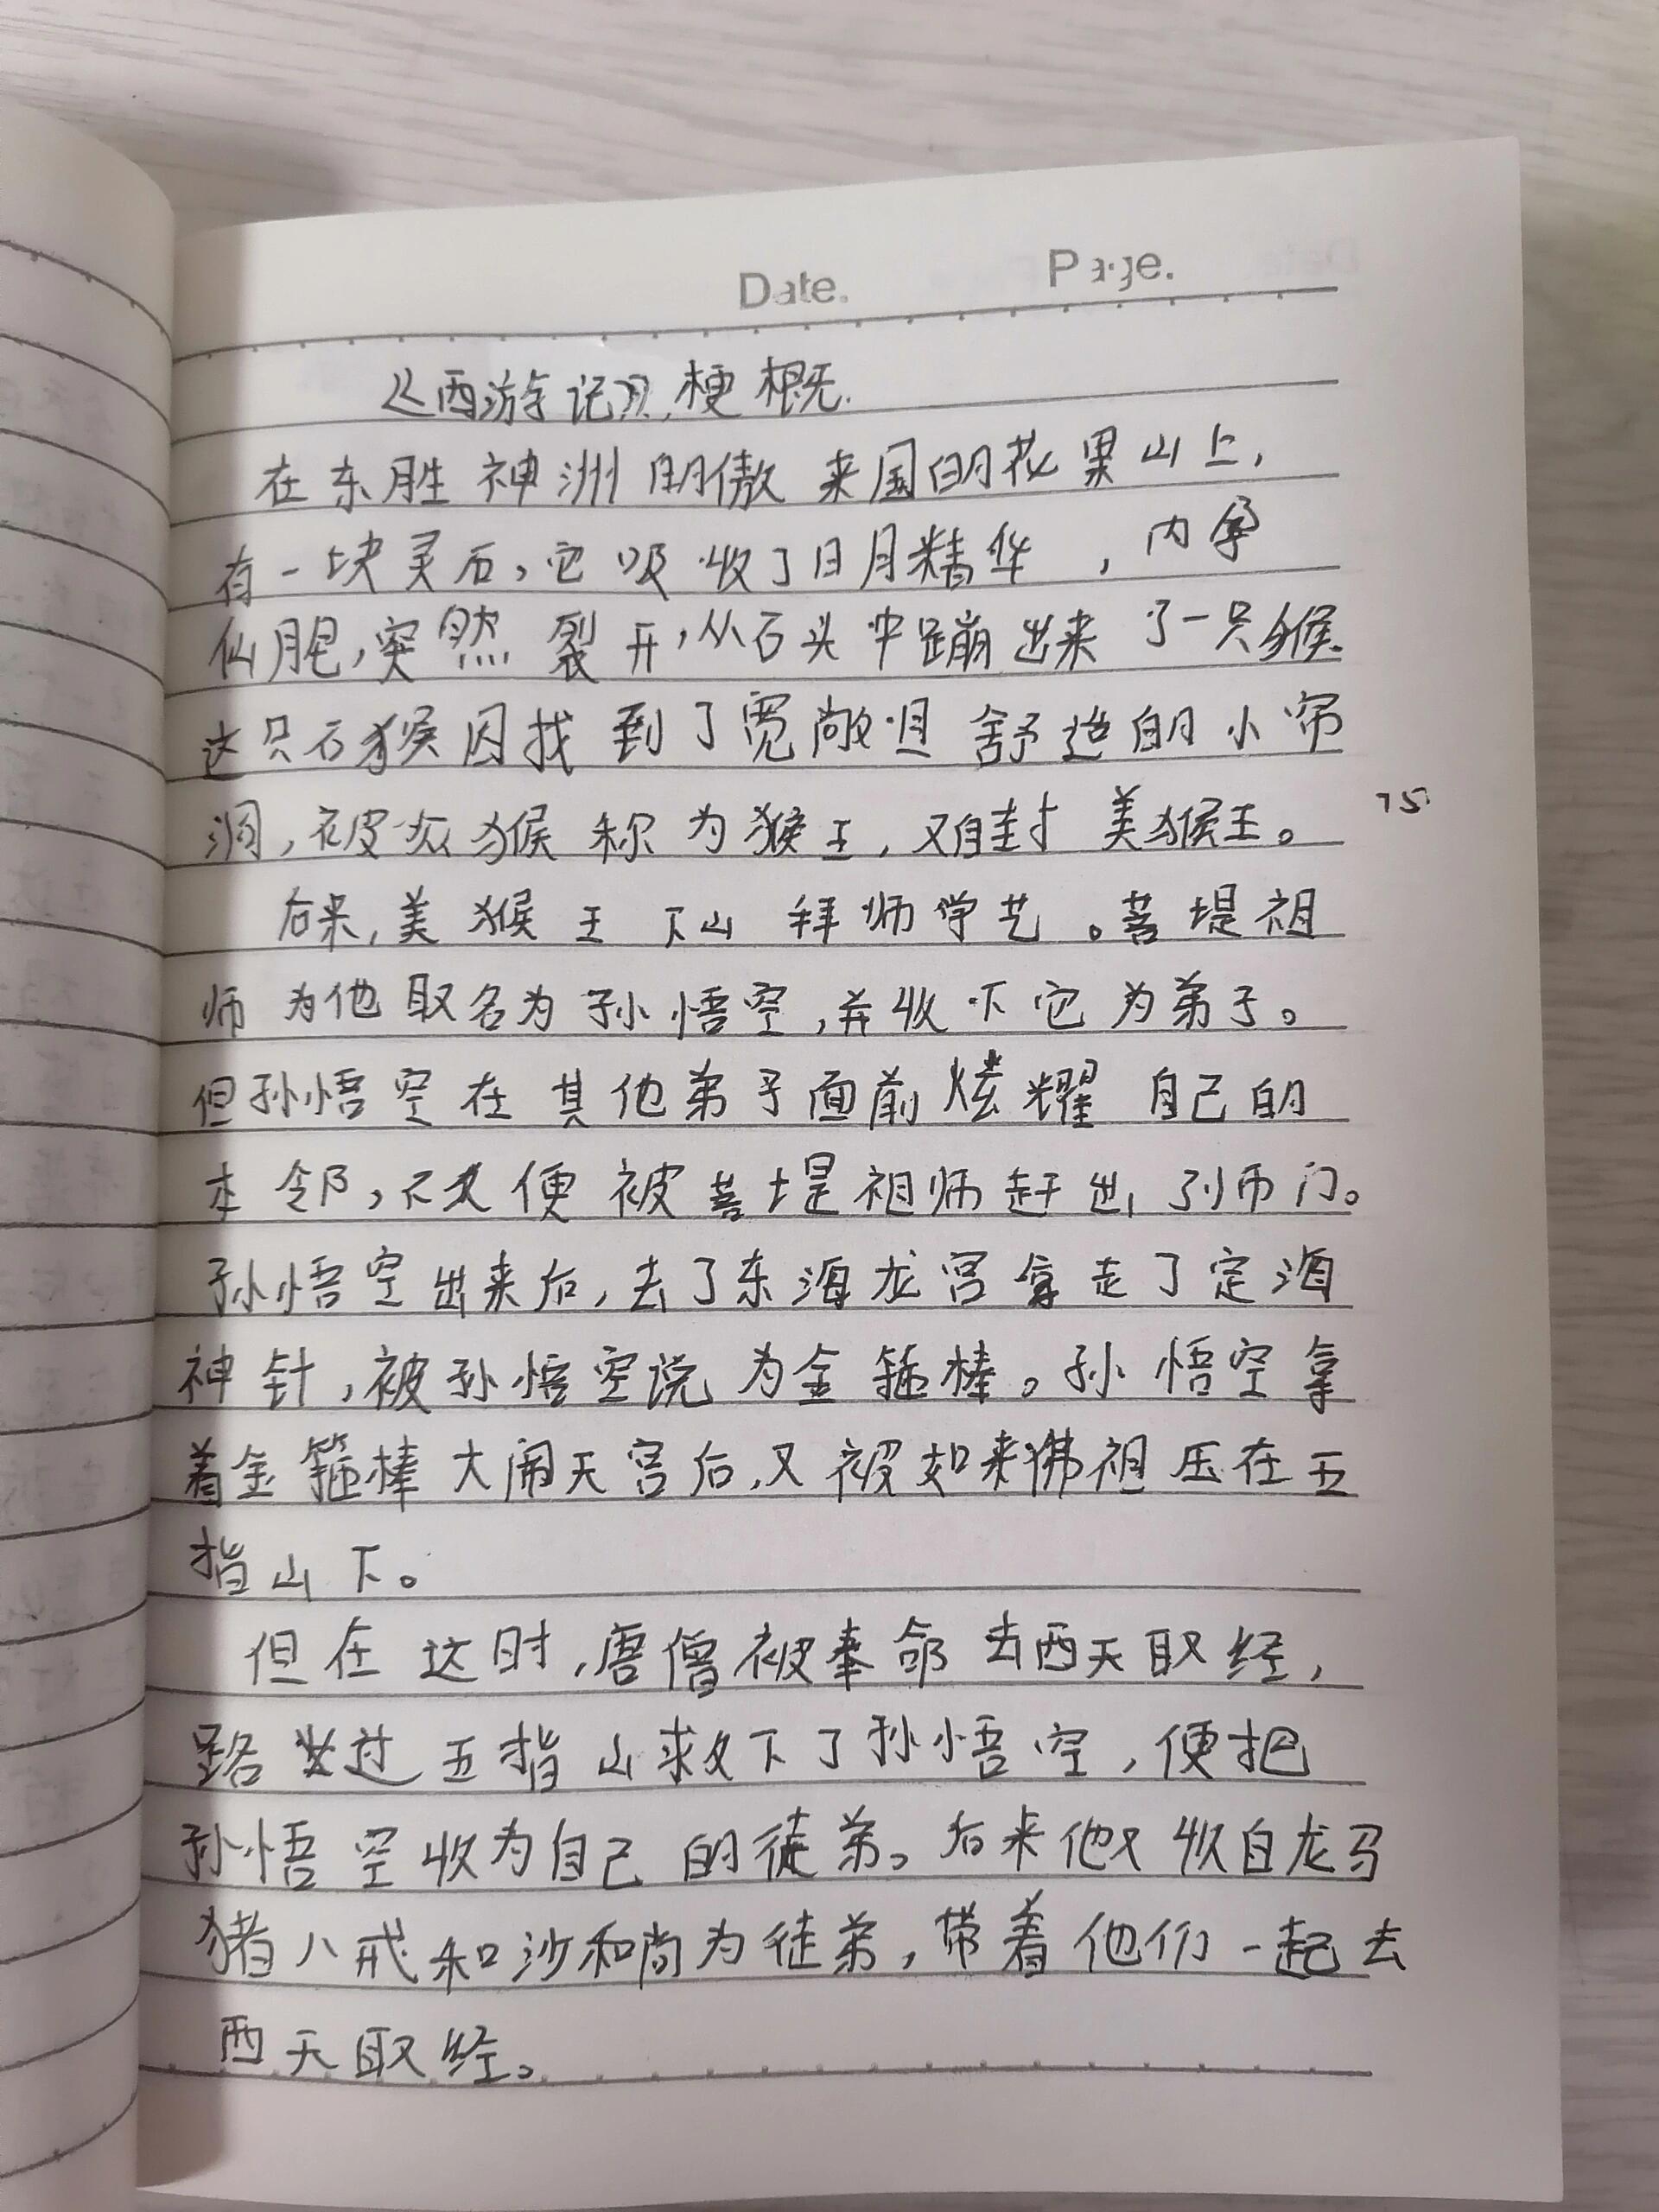 Date. Page.
《西游记》梗概.
在东胜神洲的傲来国的花果山上,
有一块灵石,它吸收了日月精华,内孕
仙胞,突然裂开,从石头中蹦出来了一只猴.
这只石猴因找到了宽敞且舒适的小帘
洞,被众猴称为猴王,又自封美猴王。
75
后来,美猴王下山拜师学艺。菩提祖
师为他取名为孙悟空,并收下它为弟子。
但孙悟空在其他弟子面前炫耀自己的
本领,不久便被菩提祖师赶出了师门。
孙悟空出来后,去了东海龙宫拿走了定海
神针,被孙悟空说为金箍棒。孙悟空拿
着金箍棒大闹天宫后,又被如来佛祖压在五
指山下。
但在这时,唐僧被奉命去西天取经,
路过五指山救下了孙悟空,便把
孙悟空收为自己的徒弟。后来他又收白龙马
猪八戒和沙和尚为徒弟,带着他们一起去
西天取经。